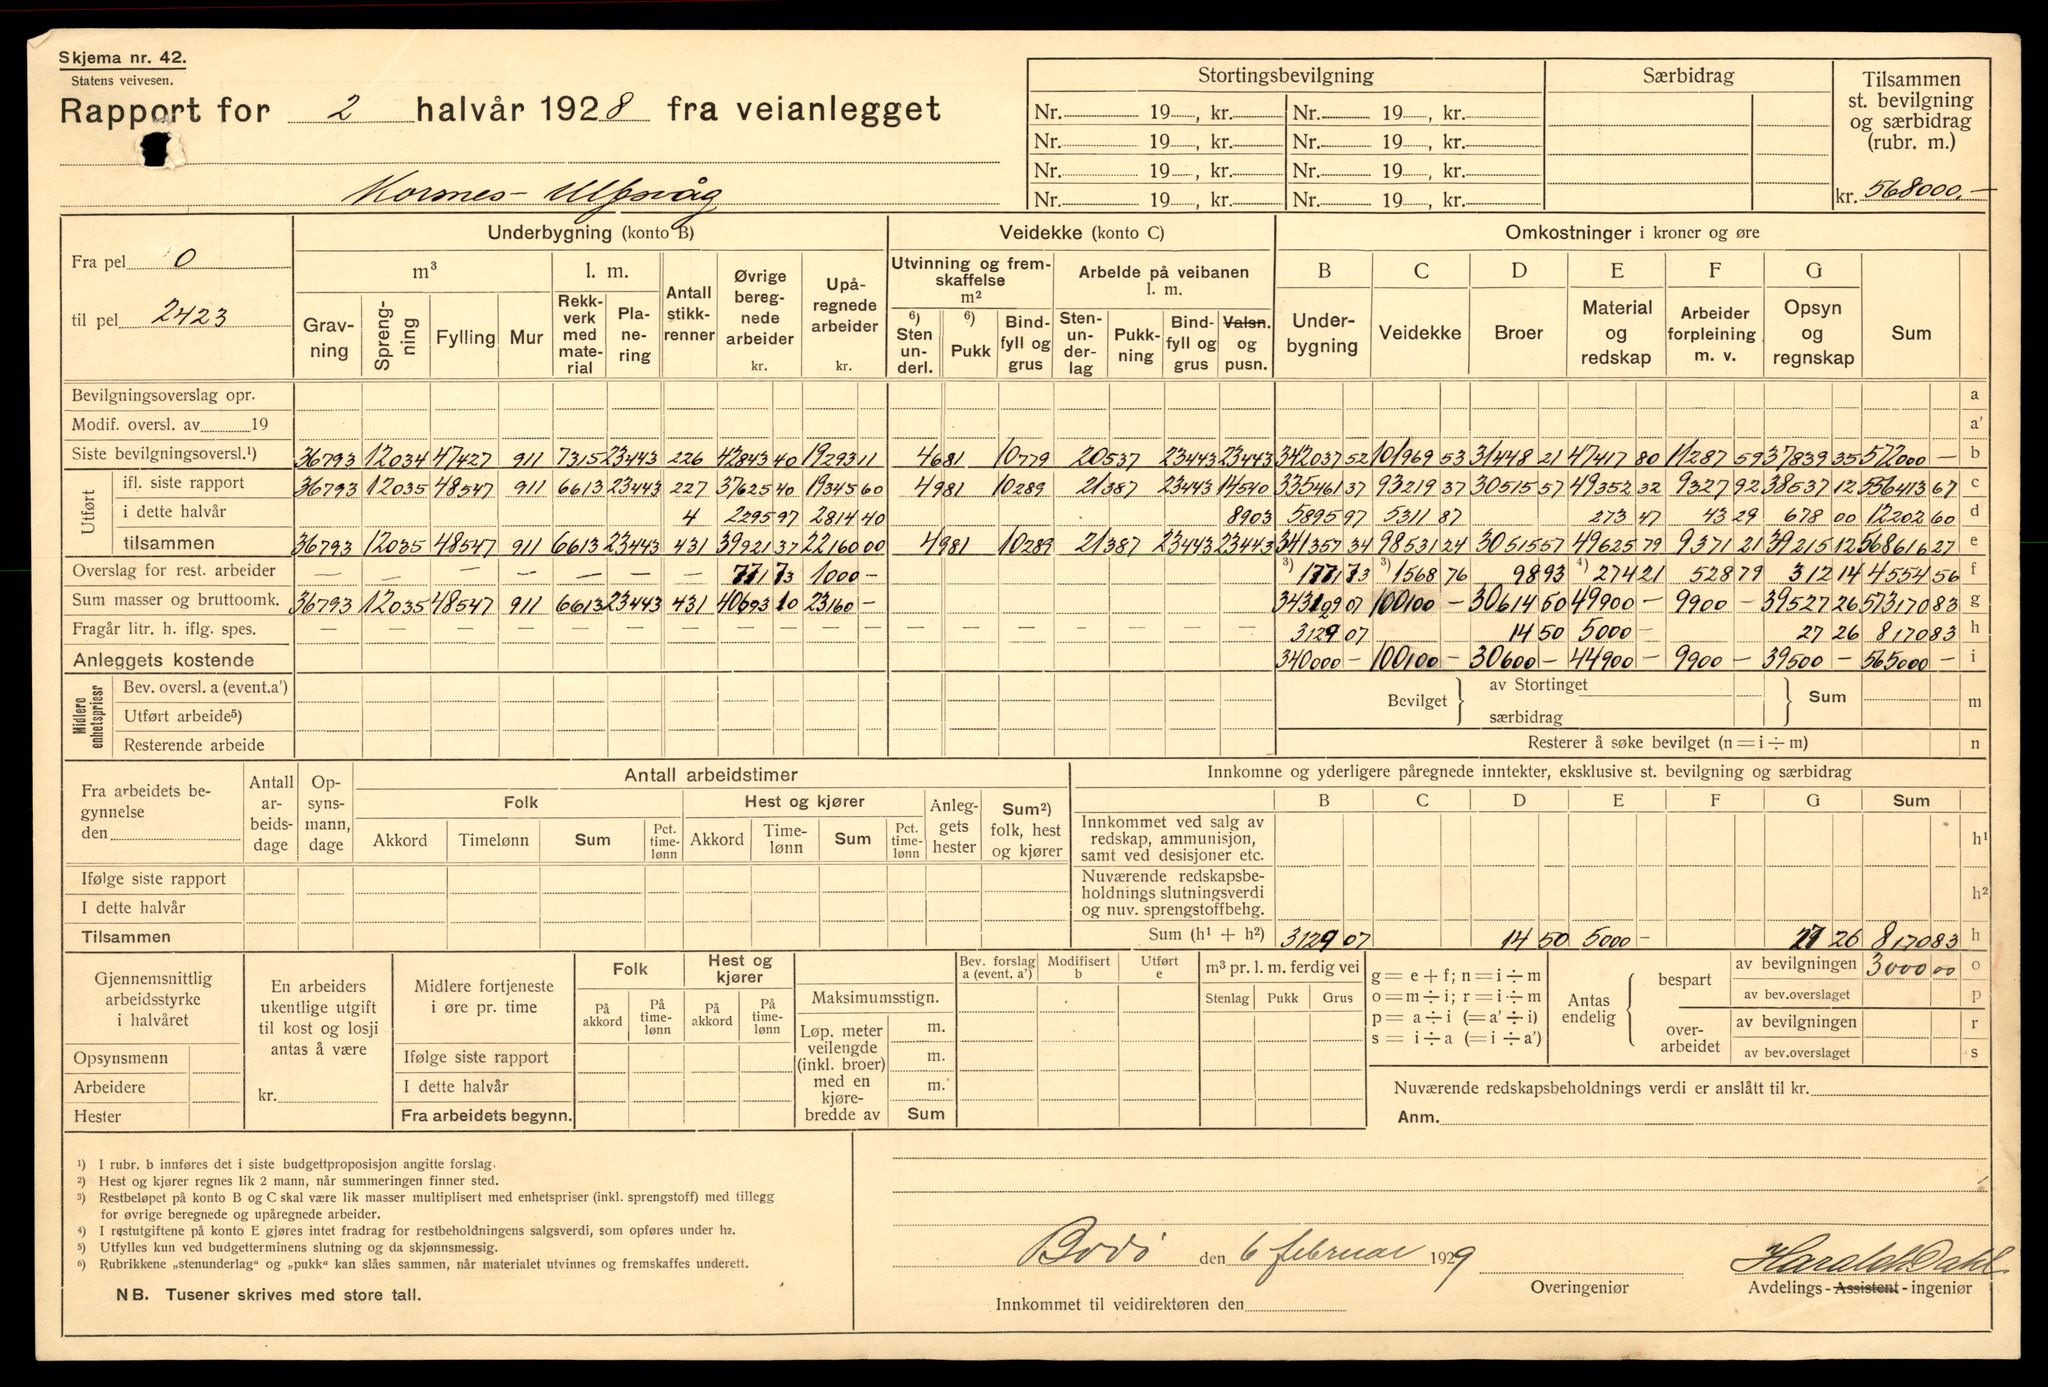 Skjema nr. 42.
Statens veivesen.
Rapport for 2 halvår 1928 fra veianlegget
Kornes- Ulfsvåg
Stortingsbevilgning
Særbidrag
Tilsammen st. bevilgning og særbidrag (rubr. m.)
Nr. 19 , kr. Nr. 19 , kr.
Nr. 19 , kr. Nr. 19 , kr.
Nr. 19 , kr. Nr. 19 , kr.
Nr. 19 , kr. Nr. 19 , kr.
kr. 568000,-
Fra pel 0
til pel 2423
Underbygning (konto B) Veidekke (konto C) Omkostninger i kroner og øre
m³ l. m. Antall stikk-renner Øvrige bereg-nede arbeider kr. Upå-regnede arbeider kr.
Utvinning og frem-skaffelse m² Arbeide på veibanen l. m.
B C D E F G
Grav-ning Spreng-ning Fylling Mur Rekk-verk med mate-rial Pla-ne-ring
6) Sten un-derl. 6) Pukk Bind-fyll og grus Sten-un-der-lag Pukk-ning Bind-fyll og grus Valsn. og pusn.
Under-bygning Veidekke Broer Material og redskap Arbeider forpleining m. v. Opsyn og regnskap Sum
Bevilgningsoverslag opr. a
Modif. oversl. av 19 a'
Siste bevilgningsoversl.¹) 36793 12034 47427 911 7315 23443 226 42843 40 19293 11 4681 10779 20537 23443 23443 342037 52 101969 53 31448 21 47417 80 11287 59 37839 35 572000 — b
Utført
ifl. siste rapport 36793 12035 48547 911 6613 23443 227 37625 40 19345 60 4981 10289 21387 23443 14540 335461 37 93219 37 30515 57 49352 32 9327 92 38537 12 556413 67 c
i dette halvår 4 2295 97 2814 40 8903 5895 97 5311 87 273 47 43 29 678 00 12202 60 d
tilsammen 36793 12035 48547 911 6613 23443 431 39921 37 22160 00 4981 10289 21387 23443 23443 341357 34 98531 24 30515 57 49625 79 9371 21 39215 12 568616 27 e
Overslag for rest. arbeider — — — — — — — 771 73 1000 — 3) 1771 73 3) 1568 76 98 93 4) 274 21 528 79 312 14 4554 56 f
Sum masser og bruttoomk. 36793 12035 48547 911 6613 23443 431 40693 10 23160 — 343129 07 100100 — 30614 50 49900 — 9900 — 39527 26 573170 83 g
Fragår litr. h. iflg. spes. — — — — — — — — — — — — — — — — 3129 07 14 50 5000 — 27 26 8170 83 h
Anleggets kostende 340000 — 100100 — 30600 — 44900 — 9900 — 39500 — 565000 — i
Midlere enhetspriser
Bev. oversl. a (event. a')
Utført arbeide⁵)
Resterende arbeide
Bevilget av Stortinget særbidrag Sum m
Resterer å søke bevilget (n = i ÷ m) n
Fra arbeidets be-gynnelse den
Antall ar-beids-dage
Op-syns-mann, dage
Antall arbeidstimer
Folk Hest og kjører Anleg-gets hester Sum²) folk, hest og kjører
Akkord Timelønn Sum Pct. time-lønn Akkord Time-lønn Sum Pct. time-lønn
Ifølge siste rapport
I dette halvår
Tilsammen
Innkomne og yderligere påregnede inntekter, eksklusive st. bevilgning og særbidrag
B C D E F G Sum
Innkommet ved salg av redskap, ammunisjon, samt ved desisjoner etc. h¹
Nuværende redskapsbe-holdnings slutningsverdi og nuv. sprengstoffbehg. h²
Sum (h¹ + h²) 3129 07 14 50 5000 — 27 26 8170 83 h
Gjennemsnittlig arbeidsstyrke i halvåret
Opsynsmenn
Arbeidere
Hester
En arbeiders ukentlige utgift til kost og losji antas å være
kr.
Midlere fortjeneste i øre pr. time
Folk Hest og kjører
På akkord På time-lønn På akkord På time-lønn
Ifølge siste rapport
I dette halvår
Fra arbeidets begynn.
Bev. forslag a (event. a') Modifisert b Utført e
Maksimumsstign.
Løp. meter veilengde (inkl. broer) med en kjøre-bredde av
m.
m.
m.
Sum
m³ pr. l. m. ferdig vei
Stenlag Pukk Grus
g = e + f; n = i ÷ m
o = m ÷ i; r = i ÷ m
p = a ÷ i (= a' ÷ i)
s = i ÷ a (= i ÷ a')
Antas endelig
bespart av bevilgningen 3000 00 o
av bev.overslaget p
over-arbeidet av bevilgningen r
av bev.overslaget s
Nuværende redskapsbeholdnings verdi er anslått til kr.
Anm.
¹) I rubr. b innføres det i siste budgettproposisjon angitte forslag.
²) Hest og kjører regnes lik 2 mann, når summeringen finner sted.
³) Restbeløpet på konto B og C skal være lik masser multiplisert med enhetspriser (inkl. sprengstoff) med tillegg
for øvrige beregnede og upåregnede arbeider.
⁴) I restutgiftene på konto E gjøres intet fradrag for restbeholdningens salgsverdi, som opføres under h2.
⁵) Utfylles kun ved budgetterminens slutning og da skjønnsmessig.
⁶) Rubrikkene „stenunderlag" og „pukk" kan slåes sammen, når materialet utvinnes og fremskaffes underett.
NB. Tusener skrives med store tall.
Bodö den 6 februar 1929
Harald Dahl
Overingeniør
Avdelings-Assistent-ingeniør
Innkommet til veidirektøren den